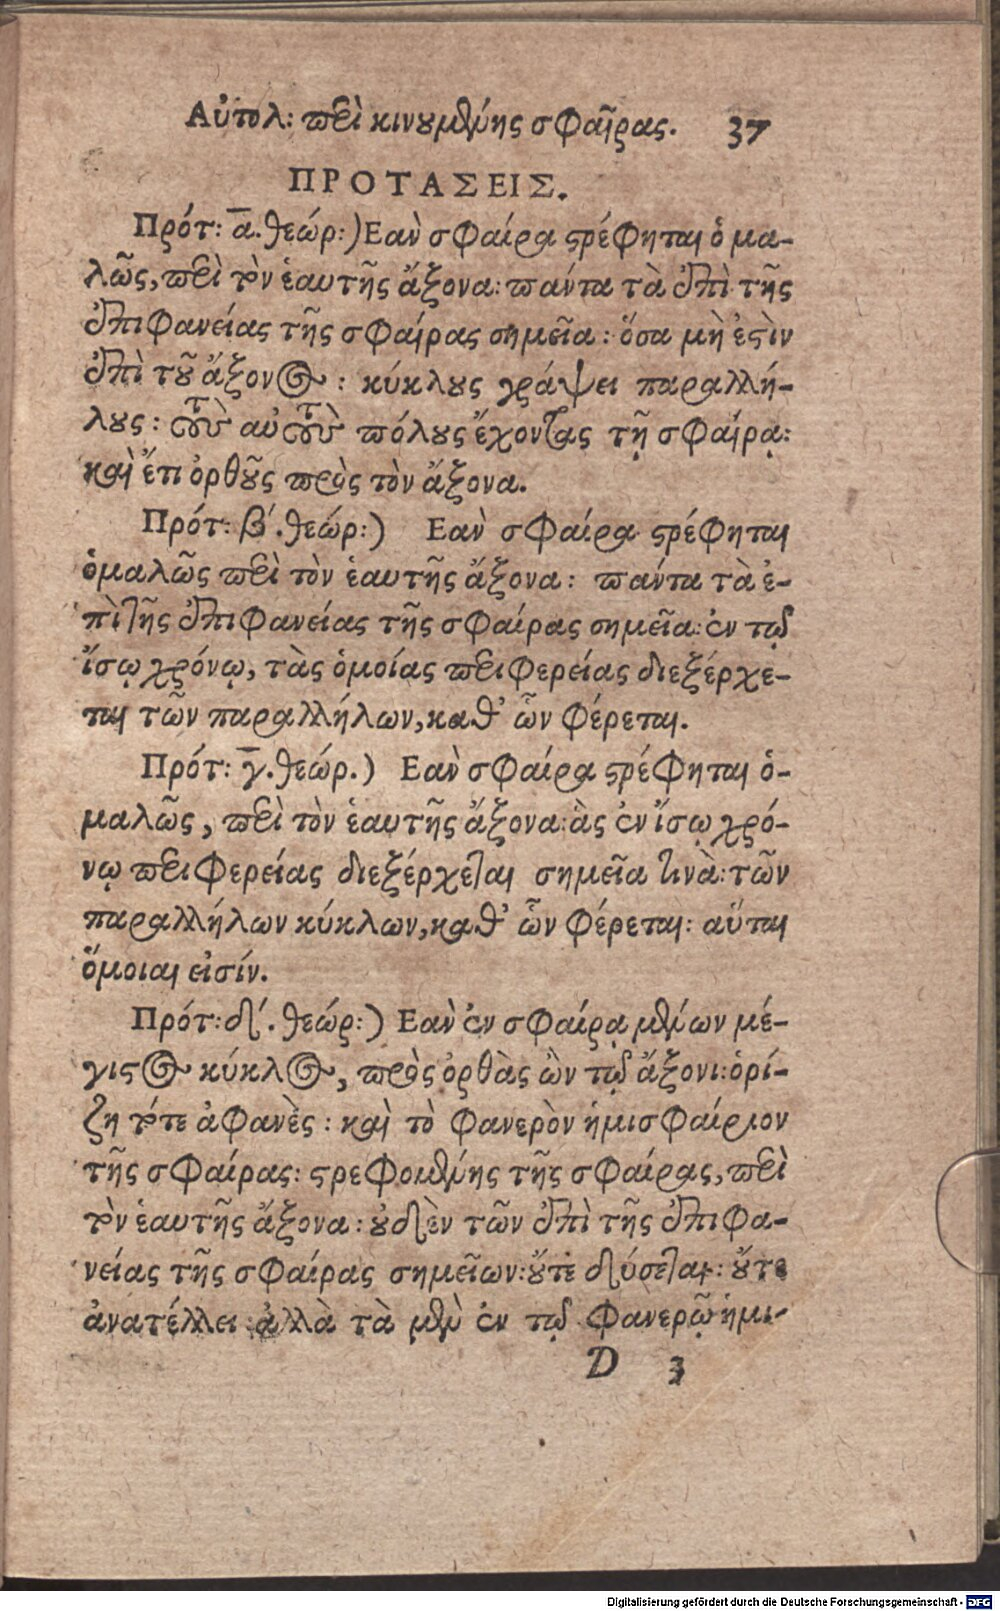 Αὐτολ: περὶ κινουμένης σφαίρας. 37
ΠΡΟΤΑΣΕΙΣ.
Πρότ: α. θεώρ:) Εαν σφαίρα στρέφηται ὁ μα-
λῶς, περὶ τὸν ἑαυτῆς ἄξονα: πάντα τὰ ἐπὶ τῆς
ἐπιφανείας τῆς σφαίρας σημεῖα: ὅσα μὴ ἐστὶν
ἐπὶ τοῦ ἄξονος: κύκλους γράψει παραλλή-
λους: τοὺς αὐτοὺς πόλους ἔχοντας τῇ σφαίρᾳ:
καὶ ἔτι ὀρθοὺς πρὸς τὸν ἄξονα.
Πρότ: β΄. θεώρ:) Εὰν σφαίρα στρέφηται
ὁμαλῶς περὶ τὸν ἑαυτῆς ἄξονα: πάντα τὰ ἐ-
πὶ τῆς ἐπιφανείας τῆς σφαίρας σημεῖα: ἐν τῷ
ἴσῳ χρόνῳ, τὰς ὁμοίας περιφερείας διεξέρχε-
ται τῶν παραλλήλων, καθ’ ὧν φέρεται.
Πρότ: γ. θεώρ.) Εὰν σφαίρα στρέφηται ὁ-
μαλῶς, περὶ τὸν ἑαυτῆς ἄξονα: ἃς ἐν ἴσῳ χρό-
νῳ περιφερείας διεξέρχεται σημεῖα τινὰ: τῶν
παραλλήλων κύκλων, καθ’ ὧν φέρεται: αὗται
ὅμοιαι εἰσίν.
Πρότ: δ΄. θεώρ:) Εὰν ἐν σφαίρᾳ μένων μέ-
γιστος κύκλος, πρὸς ὀρθὰς ὢν τῷ ἄξονι: ὁρί-
ζη τότε ἀφανὲς: καὶ τὸ φανερὸν ἡμισφαίριον
τῆς σφαίρας: στρεφομένης τῆς σφαίρας, περὶ
τὸν ἑαυτῆς ἄξονα: οὐδὲν τῶν ἐπὶ τῆς ἐπιφα-
νείας τῆς σφαίρας σημείων: οὔτε δύσεται: οὔτε
ἀνατέλλει: ἀλλὰ τὰ μὲν ἐν τῷ φανερῷ ἡμι-
D 3
Digitalisierung gefördert durch die Deutsche Forschungsgemeinschaft - DFG